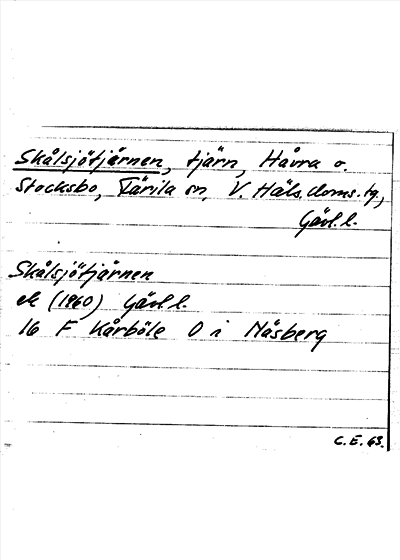 Skålsjötjärnen, tjärn, Håvra o.
Stocksbo, Färila sn, V. Häls. doms. tg,
Gävl. l.
Skålsjötjärnen
ek (1960) Gävl. l.
16 F Kårböle O i Nåsberg
C. E. 63.